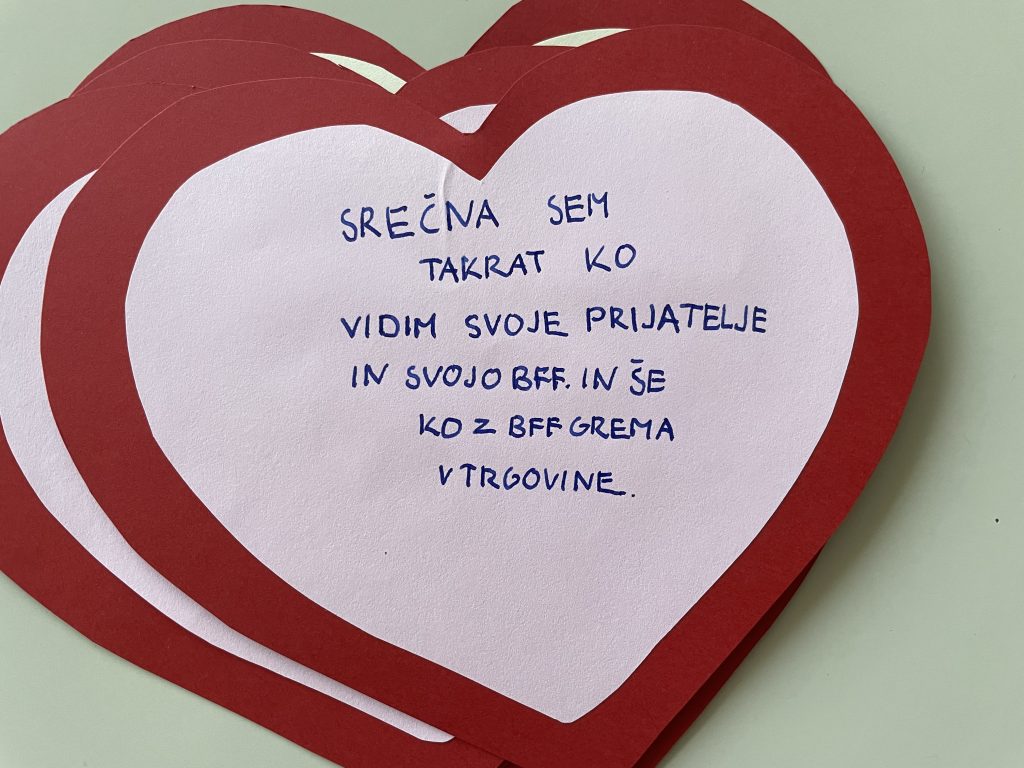 SREČNA SEM
TAKRAT KO
VIDIM SVOJE PRIJATELJE
IN SVOJO BFF. IN ŠE
KO Z BFF GREMA
V TRGOVINE.